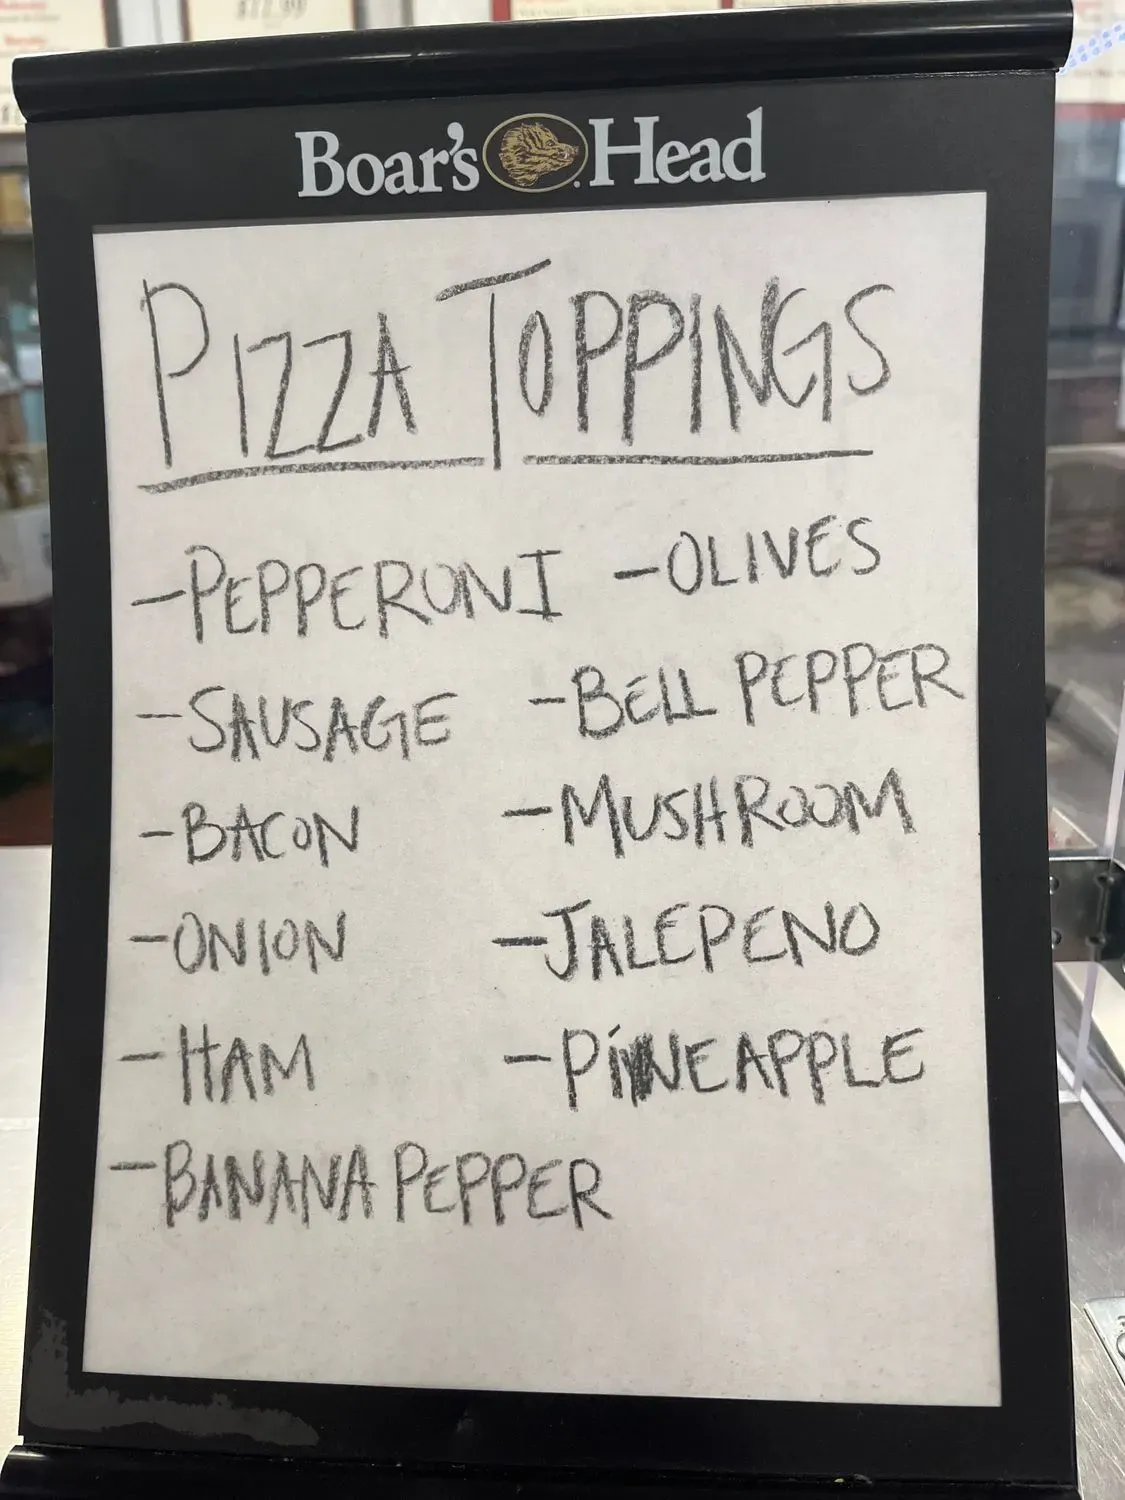 Boar's Head
PIZZA TOPPINGS
-PEPPERONI
-SAUSAGE
-BACON
-ONION
-HAM
-BANANA PEPPER
-OLIVES
-BELL PEPPER
-MUSHROOM
-JALEPENO
-PINEAPPLE